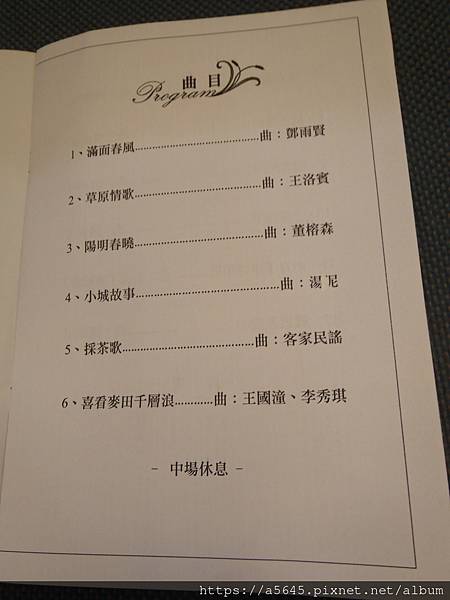 曲目
Program
1、滿面春風........................................曲：鄧雨賢
2、草原情歌........................................曲：王洛賓
3、陽明春曉........................................曲：董榕森
4、小城故事............................................曲：湯 尼
5、採茶歌........................................曲：客家民謠
6、喜看麥田千層浪............曲：王國潼、李秀琪
– 中場休息 –
https://a5645.pixnet.net/album